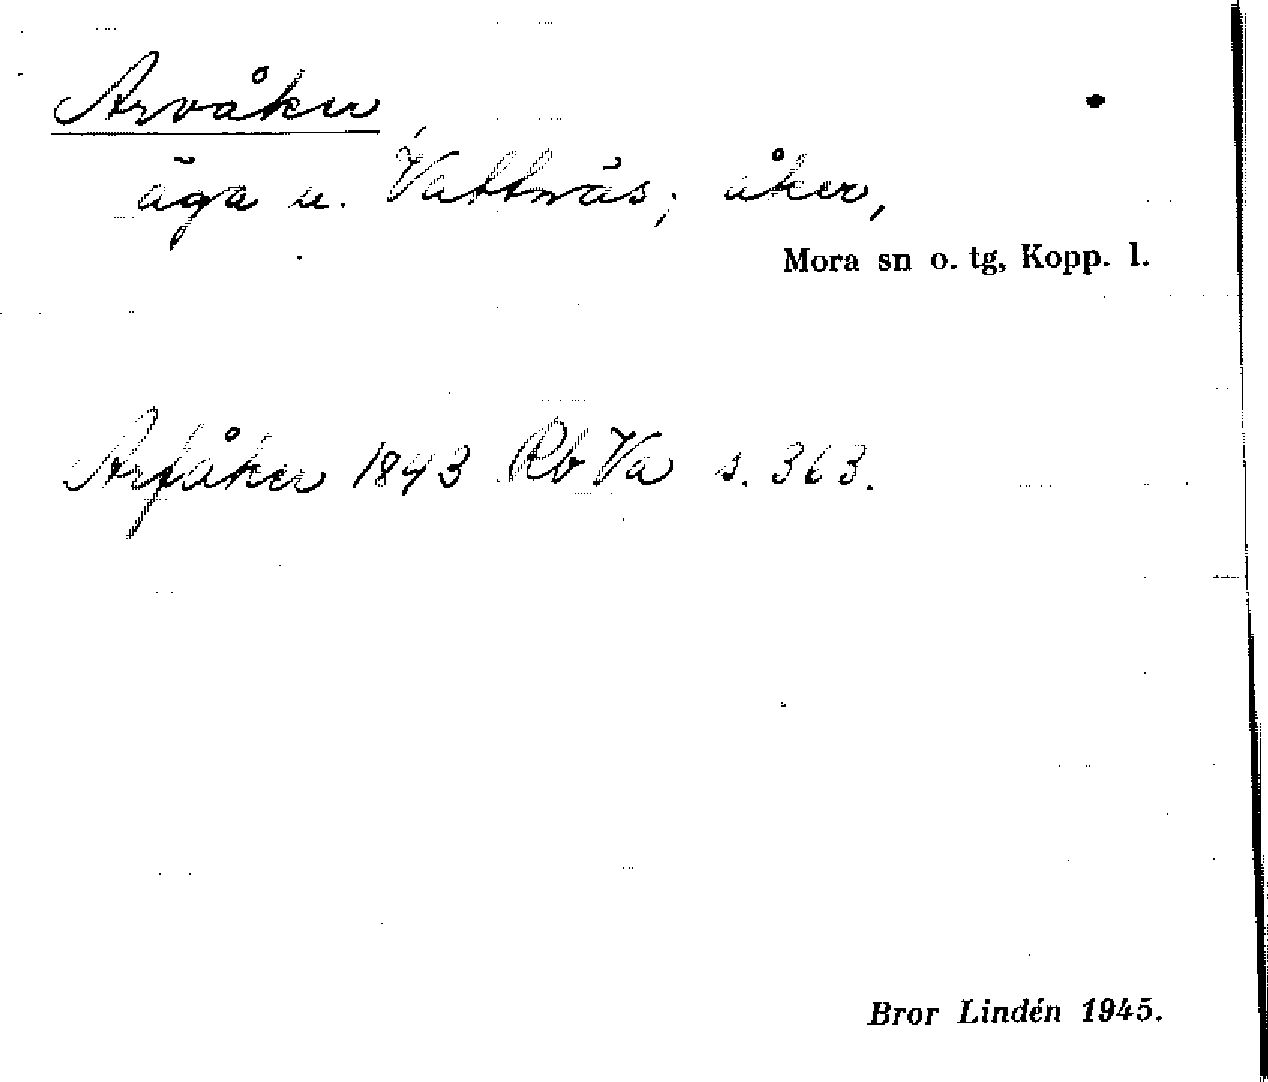 Arvåker
äga u. Vattnäs; åker,
Mora sn o. tg, Kopp. l.
Arfåker 1843 Rb Va s. 363.
Bror Lindén 1945.